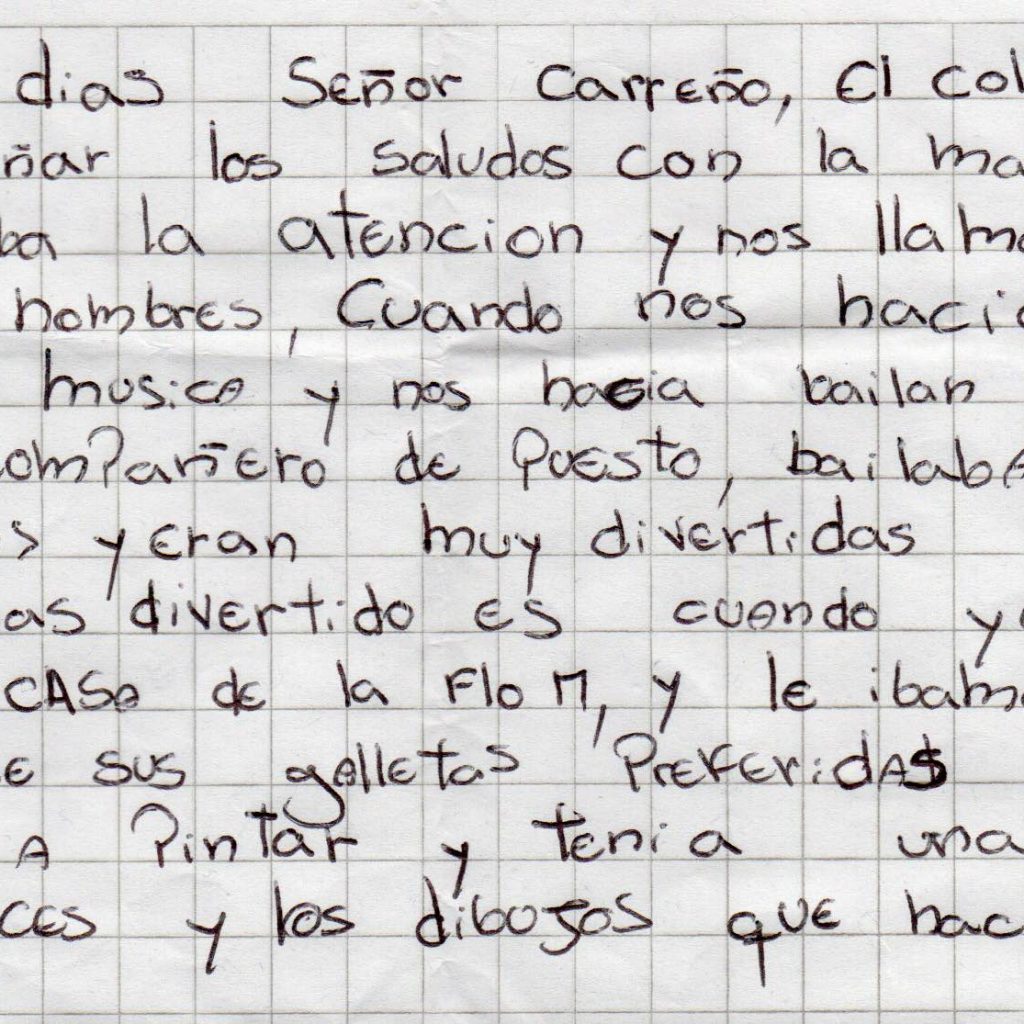 dias Señor Carreño, El col
ñar los saludos con la ma
ba la atencion y nos llama
nombres, Cuando nos hacia
musica y nos hacia bailan
compañero de puesto, bailaba
s y eran muy divertidas
as divertido es cuando y
casa de la Flo M, y le ibam
e sus galletas Preferidas
A Pintar y tenia una
ces y los dibujos que hac